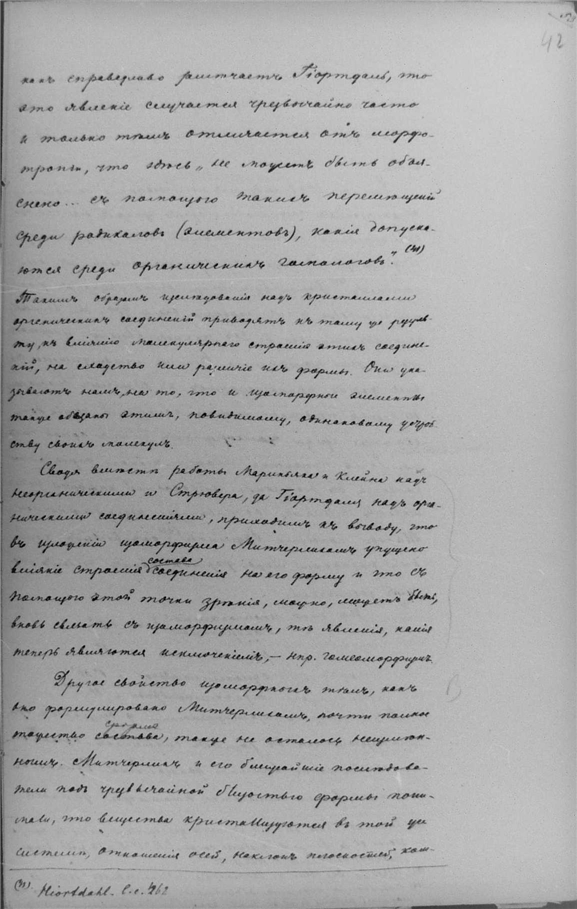 42
какъ справедливо замѣчаетъ Гіортдаль, что
это явленіе случается чрезвычайно часто
и только тѣмъ отличается отъ морфо-
тропіи, что здѣсь „не можетъ быть объя-
снено... съ помощью такихъ перемѣщеній
среди радикаловъ (элементовъ), какія допуска-
ются среди органическихъ гомологовъ“.
Такимъ образомъ изслѣдованія надъ кристаллами
органическихъ соединеній приводятъ къ тому же резуль-
ту, къ вліянію молекулярнаго строенія этихъ соедине-
ній, на сходство или различіе ихъ формы. Они ука-
зываютъ намъ, на то, что и изоморфные элементы
также обязаны этимъ, повидимому, одинаковому устрой-
ству своихъ молекулъ.
Сводя вмѣстѣ работы Мариньяка и Клейна надъ
неорганическими и Стрювера, да Гіортдаля надъ орга-
ническими соединеніями, приходимъ къ выводу, что
въ изложеніи изоморфизма Митчерлихомъ упущено
вліяніе строенія состава соединенія на его форму и что съ
помощью этой точки зрѣнія, можно, можетъ быть,
вновь связать съ изоморфизмомъ, тѣ явленія, какія
теперь являются исключеніемъ, — нпр. гомеоморфизмъ.
Другое свойство изоморфныхъ тѣлъ, какъ
оно формулировано Митчерлихомъ, почти полное
тожество состава, также не осталось неизмѣн-
нымъ. Митчерлихъ и его ближайшіе послѣдова-
тели подъ чрезвычайной близостью формы пони-
мали, что вещества кристаллизуются въ той же
системѣ, отношенія осей, наклонъ плоскостей, как-
Hiortdahl. l. c. 262